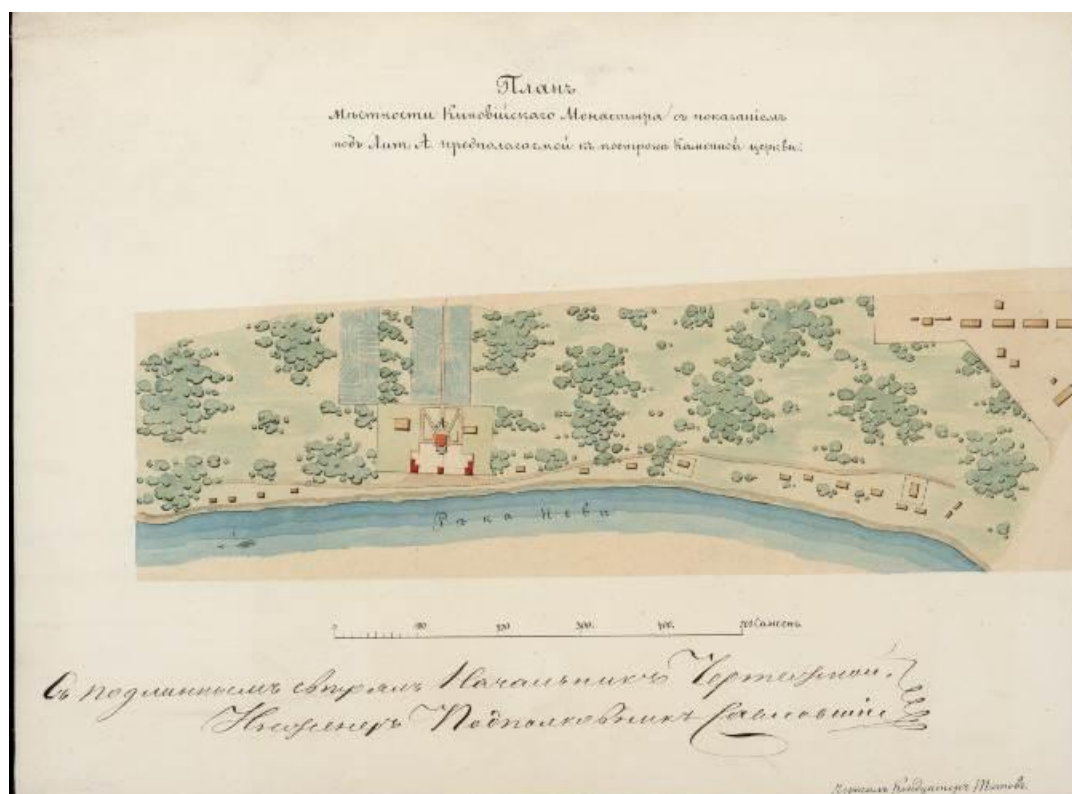 Планъ
Мѣстности Киновійскаго Монастыря / съ показаніемъ
подъ Лит. А. предполагаемой къ постройкѣ Каменной церкви.
Рѣка Нева
0 100 200 300. 400. 500 Сажень
Съ подлиннымъ свѣрялъ Начальникъ Чертежной.
Инженеръ Подполковникъ
Чертилъ Кондукторъ